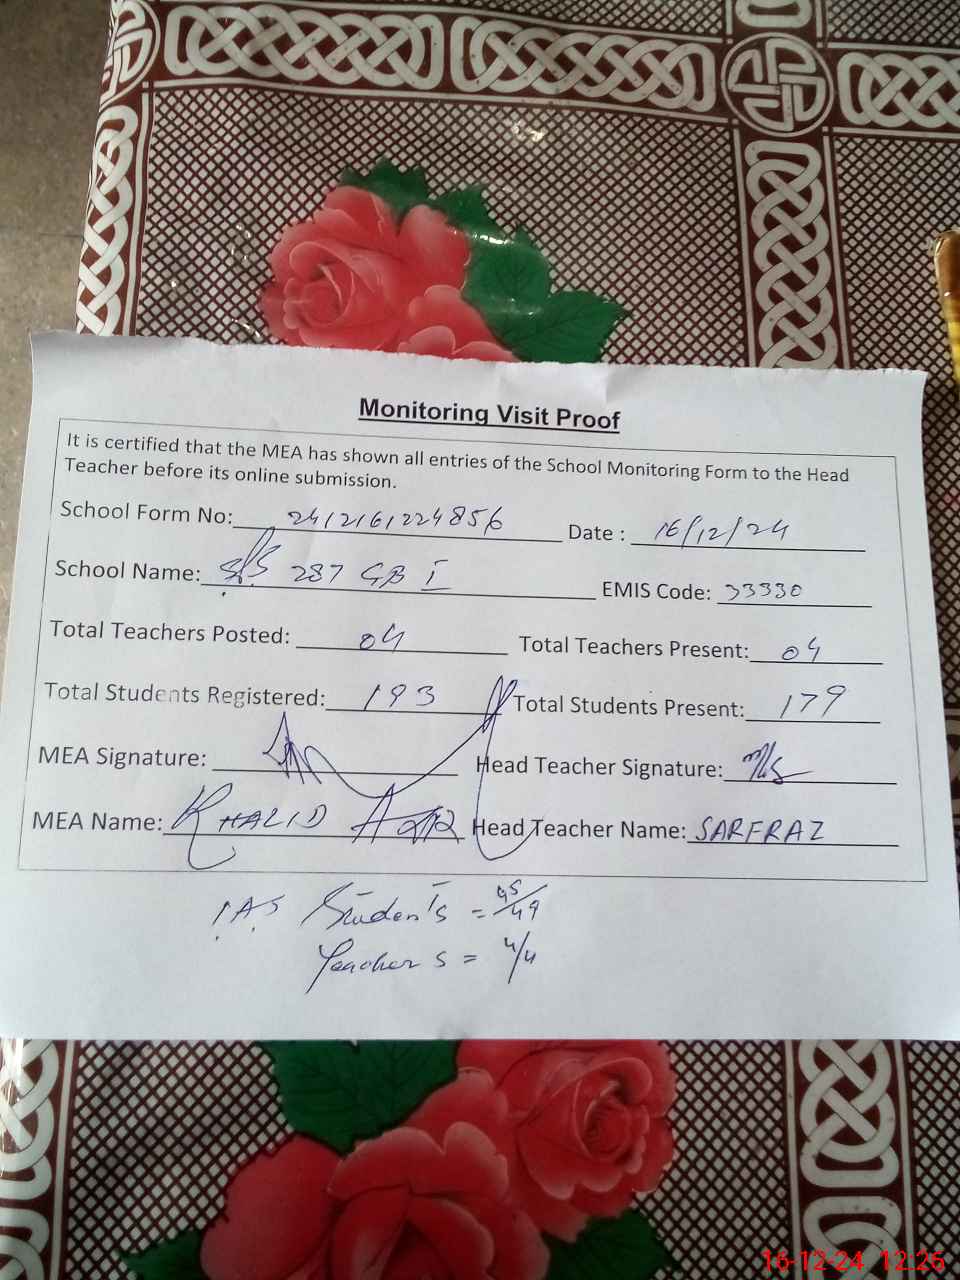 Monitoring Visit Proof
It is certified that the MEA has shown all entries of the School Monitoring Form to the Head
Teacher before its online submission.
School Form No: 2412161224856 Date : 16/12/24
School Name: 287 GB I EMIS Code: 33330
Total Teachers Posted: 04 Total Teachers Present: 04
Total Students Registered: 193 Total Students Present: 179
MEA Signature: Head Teacher Signature:
MEA Name: KHALID Head Teacher Name: SARFRAZ
Students = 45/49
Teachers = 4/4
16-12-24 12:26